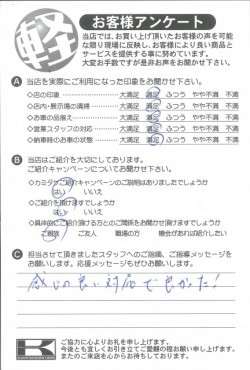 軽
お客様アンケート
当店では、お買い上げ頂いたお客様の声を可能
な限り現場に反映し、お客様により良い商品と
サービスを提供する事に努めています。
大変お手数ですが是非お声をお聞かせ下さい。
A 当店を実際にご利用になった印象をお聞かせ下さい。
◇店の印象 大満足 満足 ふつう やや不満 不満
◇店内・展示場の清掃 大満足 満足 ふつう やや不満 不満
◇お車の品揃え 大満足 満足 ふつう やや不満 不満
◇営業スタッフの対応 大満足 満足 ふつう やや不満 不満
◇納車時のお車の状態 大満足 満足 ふつう やや不満 不満
B 当店はご紹介を大切にしております。
ご紹介キャンペーンについてお聞かせ下さい。
◇カミタケご紹介キャンペーンのご説明はありましたでしょうか
はい いいえ
◇ご紹介を頂けますでしょうか
はい いいえ
◇具体的にご紹介頂ける方とのご関係をお聞かせ頂けますでしょうか
ご親族 ご友人 職場の方 機会があれば紹介したい
C 担当させて頂きましたスタッフへのご指摘、ご指導メッセージを
お願いします。応援メッセージもぜひお願いします。
感じの良い対応で良かった!
K
ご協力に心よりお礼を申し上げます。
今後とも宜しくお引き立てご愛顧の程お願い申し上げます。
またのご来店を心からお待ちしております。